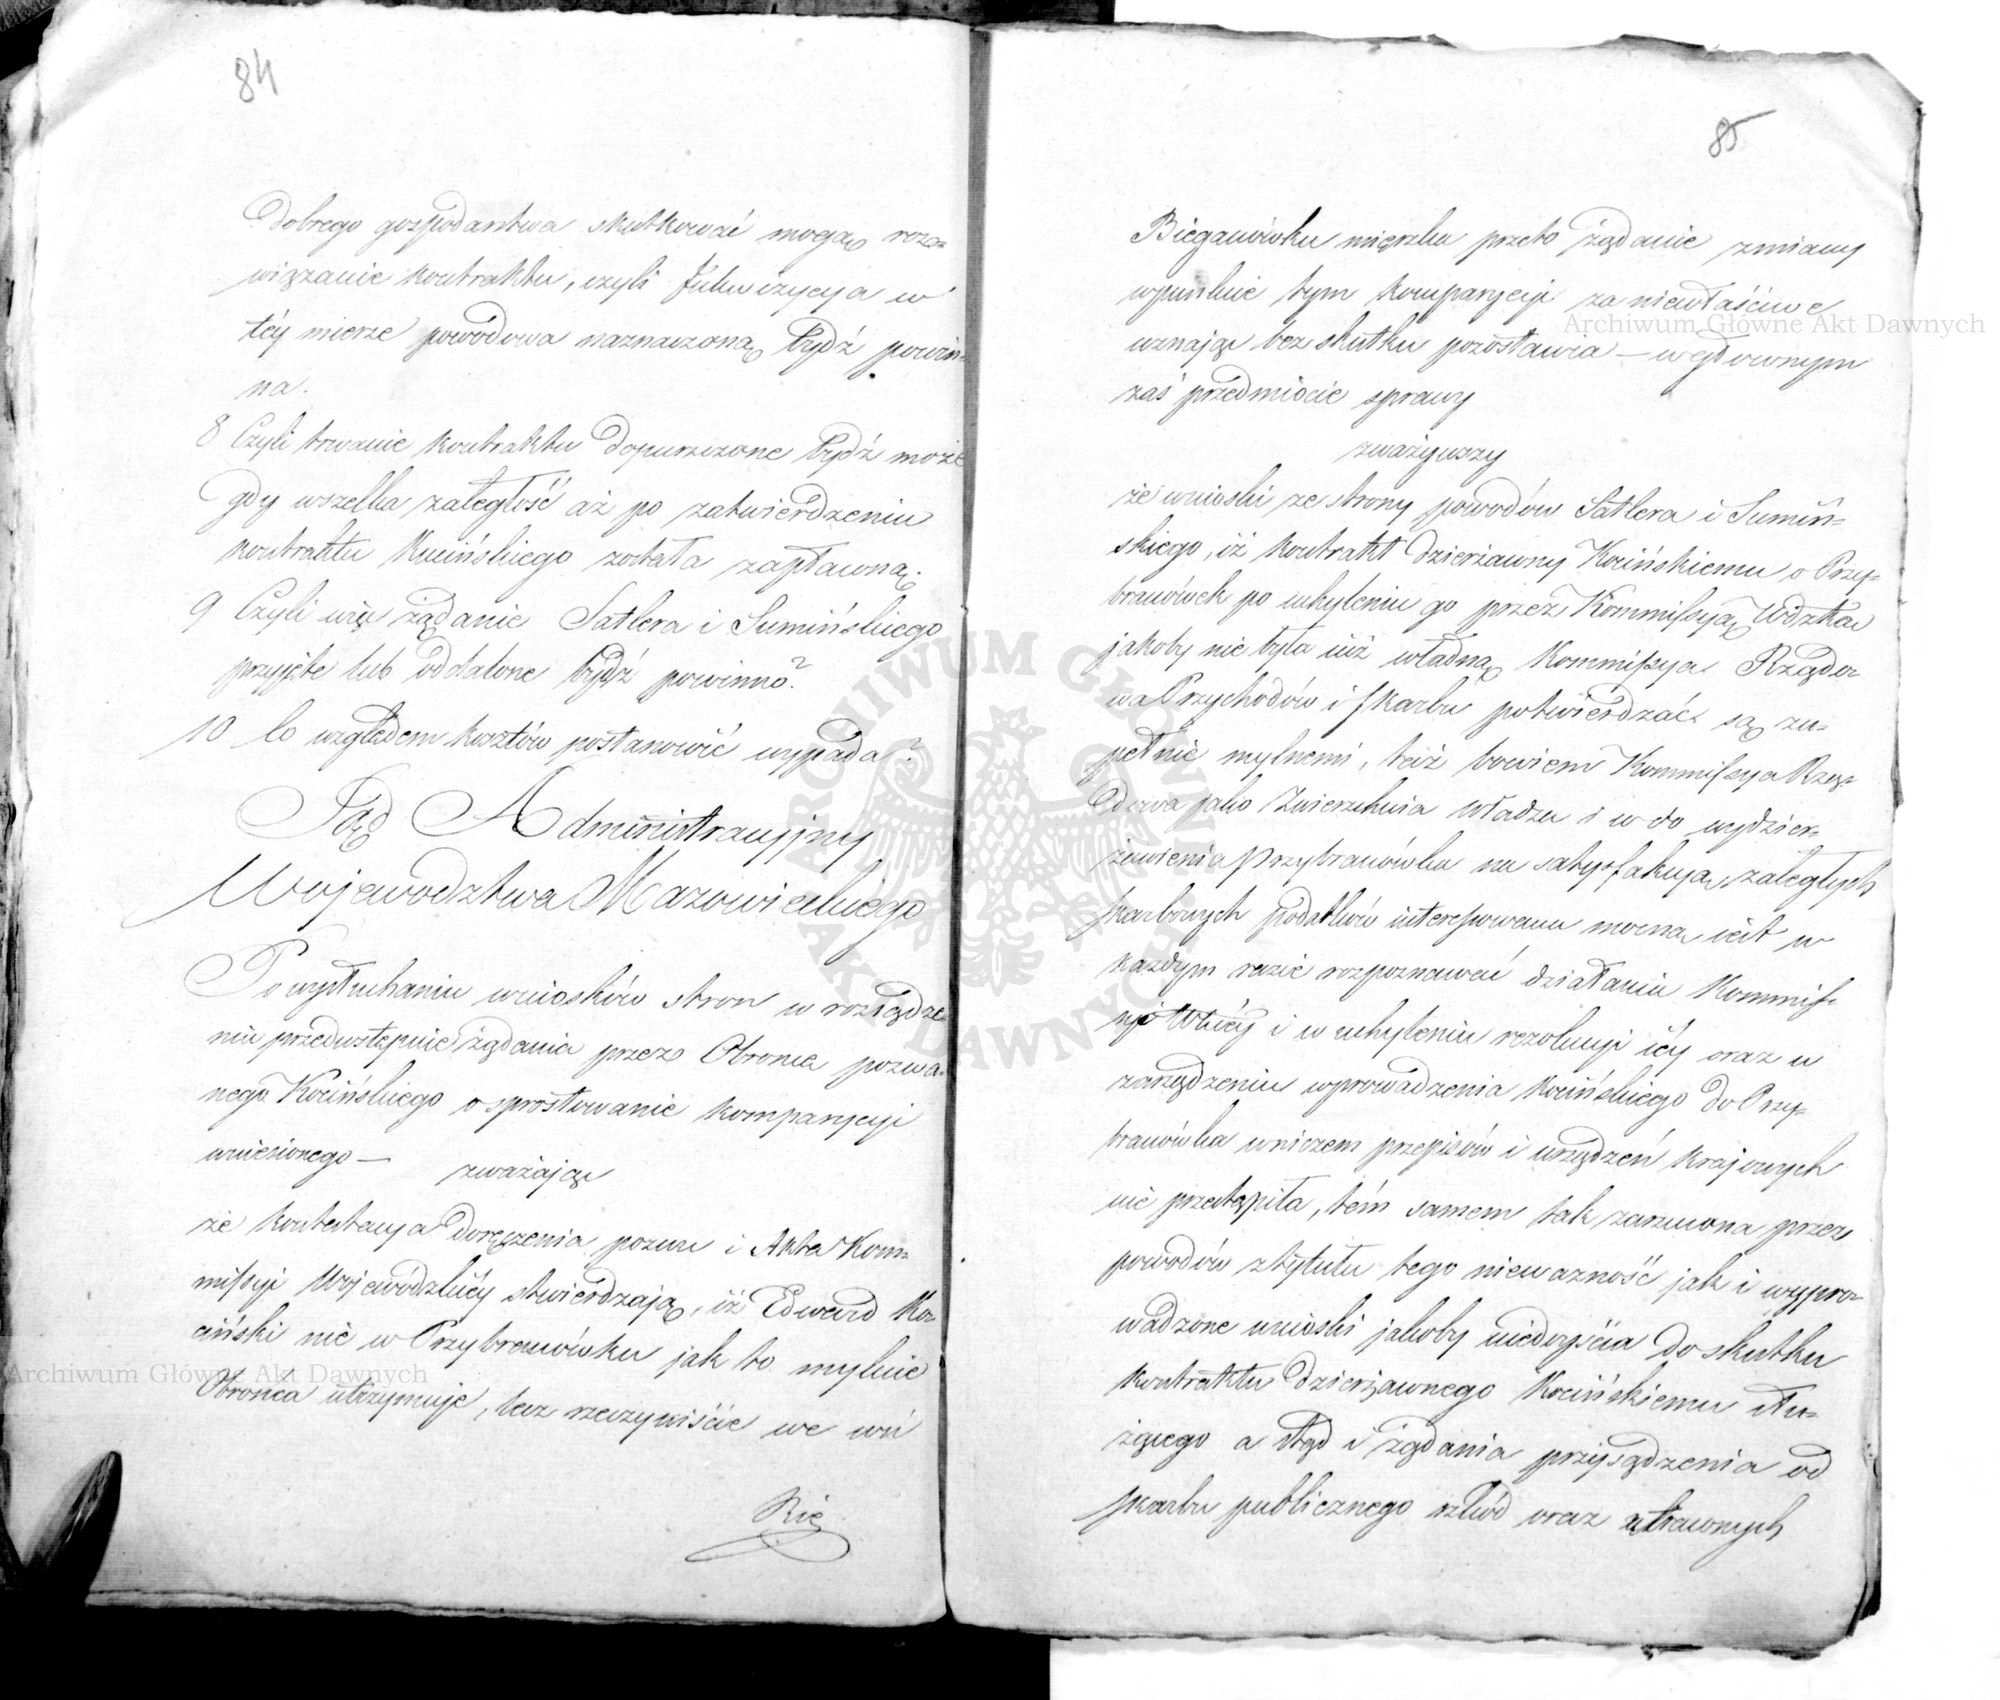 84
Dobrego gospodarstwa skutkować mogą roz=
wiązanie kontraktu, czyli Inkwizycya w
téy mierze powódowa naznaczoną bydź powin=
na.
8 Czyli trwanie kontraktu dopuszczone bydź może
gdy wszelka zaległość aż po zatwierdzeniu
kontraktu Kocińskiego została zapłacona.
9 Czyli więc żądanie Satlera i Sumińskiego
przyjęte lub oddalone bydź powinno?
10 Co względem kosztów postanowić wypada?
Sąd Administracyjny
Województwa Mazowieckiego
Po wysłuchaniu wniosków stron w rozsądze=
niu przedwstępnie żądania przez Obrońcę pozwa=
nego Kocińskiego o sprostowanie komparycyi
wniesionego — zważając
że kontestacya doręczenia pozwu i Akta Kom=
missyi Wojewódzkiéy stwierdzają, iż Edward Ko=
ciński nie w Przybranówku jak to mylnie
Obrońca utrzymuje, lecz rzeczywiście we wsi
Bie
85
Bieganówku mieszka przeto żądanie zmiany
wpunkcie tym komparycyi za niewłaściwe
uznając bez skutku pozostawia — w głównym
zaś przedmiocie sprawy
zważywszy
że wnioski ze strony powodów Satlera i Sumiń=
skiego, iż kontrakt dzierżawny Kocińskiemu o Przy=
branówek po uchyleniu go przez Kommissyą Wdzką
jakoby nie była iuż władną Kommissya Rządo=
wa Przychodów i Skarbu potwierdzać są zu=
pełnie mylnemi, taż bowiem Kommissya Rzą=
dowa jako Zwierzchnia władza i w do wydzier=
żawienia Przybranówka na satysfakcyą zaległych
skarbowych podatków interessowana mocna iest w
każdym razie rozpoznawać działania Kommis=
syi Wdzkiéy i w uchyleniu rezolucyi iéy oraz w
zarządzeniu wprowadzenia Kocińskiego do Przy=
branówka wniczem przepisów i urządzeń krajowych
nie przestąpiła, tém samem tak zarzucona przez
powodów z tytułu tego nieważność jak i wypro=
wadzone wnioski jakoby niedoyścia do skutku
kontraktu dzierżawnego Kocińskiemu słu=
żącego a stąd i żądania przysądzenia od
skarbu publicznego szkód oraz utraconych
Archiwum Główne Akt Dawnych
Archiwum Główne Akt Dawnych
ARCHIWUM GŁÓWNE AKT DAWNYCH